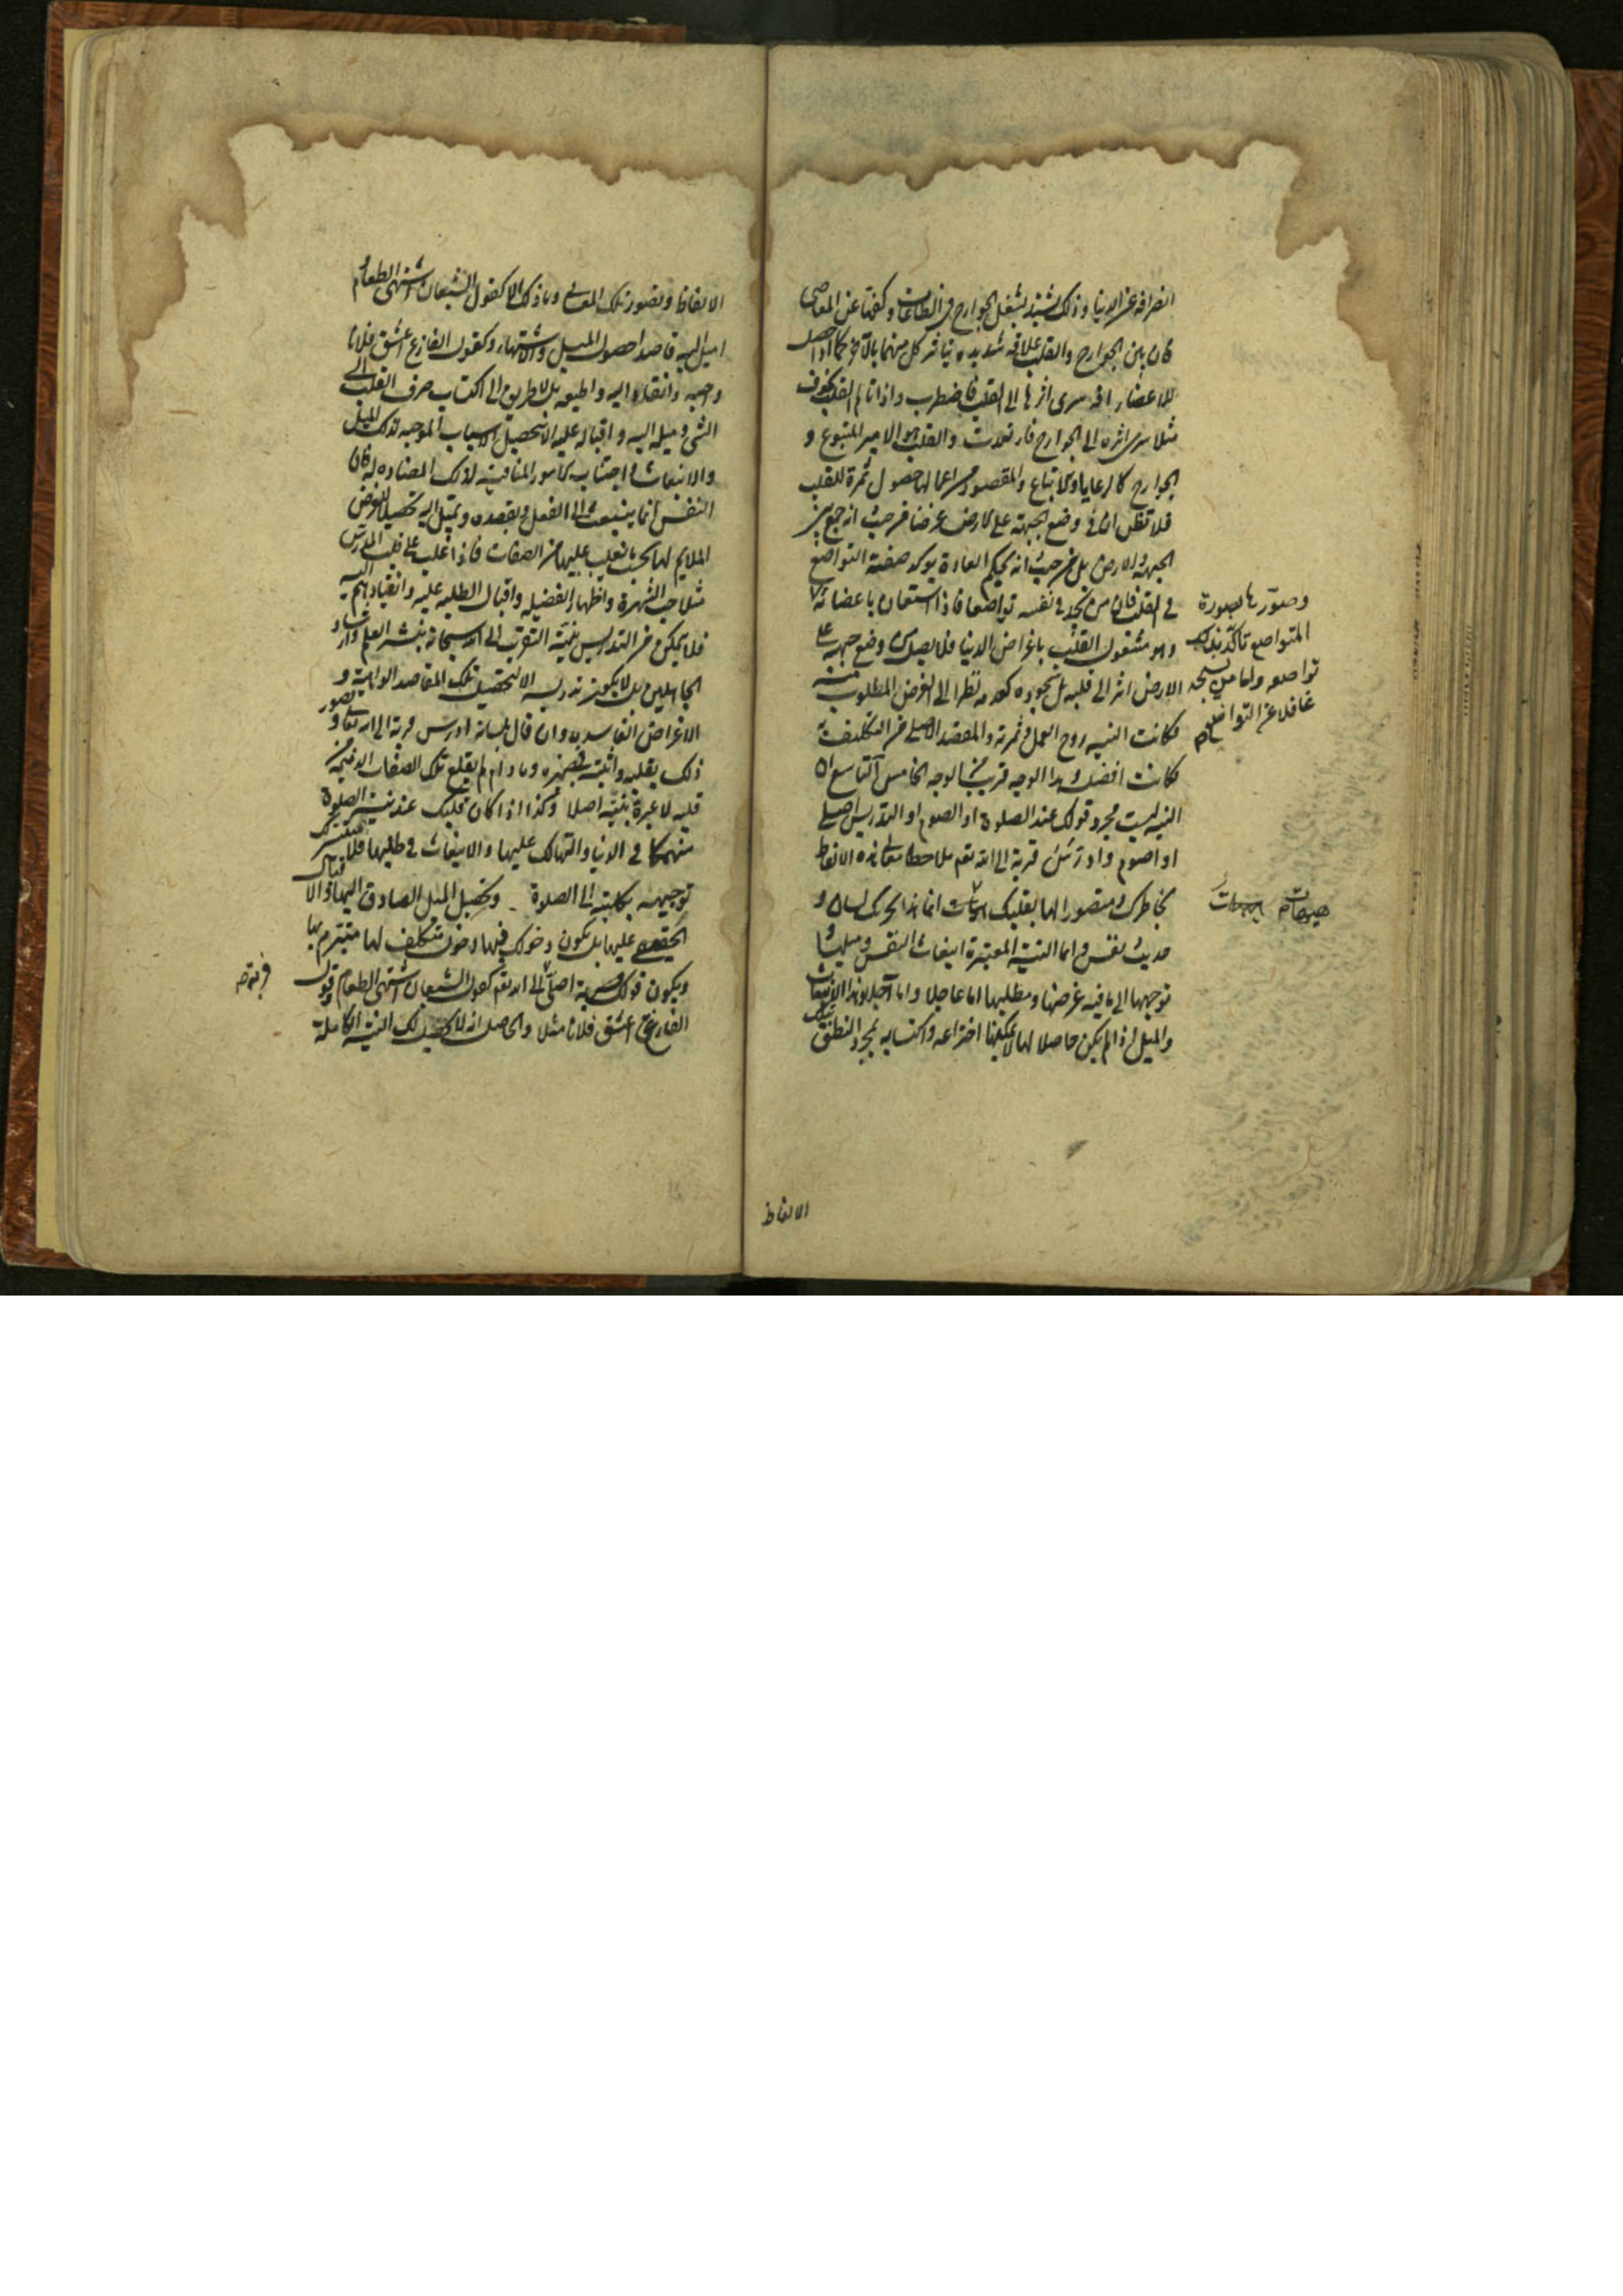 انصرافه عن الدنيا وذلك يشتد بشغل الجوارح في الطاعات وكفها عن المعاصي
فان بين الجوارح والقلب علاقة شديدة يتاثر كل منهما بالآخر كما اذا حصل
للاعضاء آفة سرى اثرها الى القلب فاضطرب واذا تالم القلب بخوف
مثلا سرى اثره الى الجوارح فارتعدت والقلب هو الامير المتبوع و
الجوارح كالرعايا والاتباع والمقصود من اعمالها حصول ثمرة للقلب
فلا تظن ان في وضع الجبهة على الارض غرضا من حيث انه جمع بين
الجبهة والارض بل من حيث انه بحكم العادة يؤكد صفة التواضع
في القلب فان من يجد في نفسه تواضعا فاذا استعان باعضائه
وصورها بصورة
المتواضع تاكد بذلك
تواضعه واما من يسجد
غافلا عن التواضع
وهو مشغول القلب باغراض الدنيا فلا يصل من وضع جبهته على
الارض اثر الى قلبه بل سجوده كعدمه نظرا الى الغرض المطلوب منه
فكانت النية روح العمل وثمرته والمقصد الاصلي من التكليف به
فكانت افضل وهذا الوجه قريب من الوجه الخامس التاسع ان
النية ليست مجرد قولك عند الصلوة او الصوم او التدريس اصلي
او اصوم او ادرس قربة الى الله تعم ملاحظا معاني هذه الالفاظ
بخاطرك ومتصورا لها بقلبك هيهات انما هذا تحريك لسان و
هيهات
حديث نفس وانما النية المعتبرة انبعاث النفس وميلها و
توجهها الى ما فيه غرضها ومطلبها اما عاجلا واما آجلا وهذا الانبعاث
والميل اذا لم يكن حاصلا لها لا يمكنها اختراعه واكتسابه بمجرد النطق بتلك
الالفاظ
الالفاظ وتصور تلك المعاني وما ذلك الا كقول الشبعان اشتهي الطعام و
اميل اليه قاصدا حصول الميل والاشتهاء وكقول الفارغ اعشق فلانا
واحبه وانقاد اليه واطيعه بل لا طريق الى اكتساب صرف القلب الى
الشيء وميله اليه واقباله عليه الا بتحصيل الاسباب الموجبة لذلك الميل
والانبعاث واجتناب الامور المنافية لذلك المضادة له فان
النفس انما ينبعث الى الفعل وتقصده وتميل اليه تحصيلا للغرض
الملايم لها بحسب ما يغلب عليها من الصفات فاذا غلب على قلب المدرس
مثلا حب الشهرة واظهار الفضيلة واقبال الطلبة عليه وانقيادهم اليه
فلا يتمكن من التدريس بنية التقرب الى الله سبحانه بنشر العلم وارشاد
الجاهلين بل لا يكون تدريسه الا لتحصيل تلك المقاصد الواهية و
الاغراض الفاسدة وان قال بلسانه ادرس قربة الى الله تعالى وتصور
ذلك بقلبه واثبته في ضميره وما دام لم يقلع تلك الصفات الذميمة من
قلبه لا عبرة بنيته اصلا وكذا اذا كان قلبك عند نية الصلوة
منهمكا في الدنيا والتهالك عليها والانبعاث في طلبها فلا يتيسر لك
توجيهه بكليته الى الصلوة وتحصيل الميل الصادق اليها والاقبال
الحقيقي عليها بل يكون دخولك فيها دخول متكلف لها متبرم بها
ويكون قولك اصلي قربة الى الله تعم كقول الشبعان اشتهي الطعام وقول
الفارغ اعشق فلانا مثلا والحاصل انه لا يحصل لك النية الكاملة